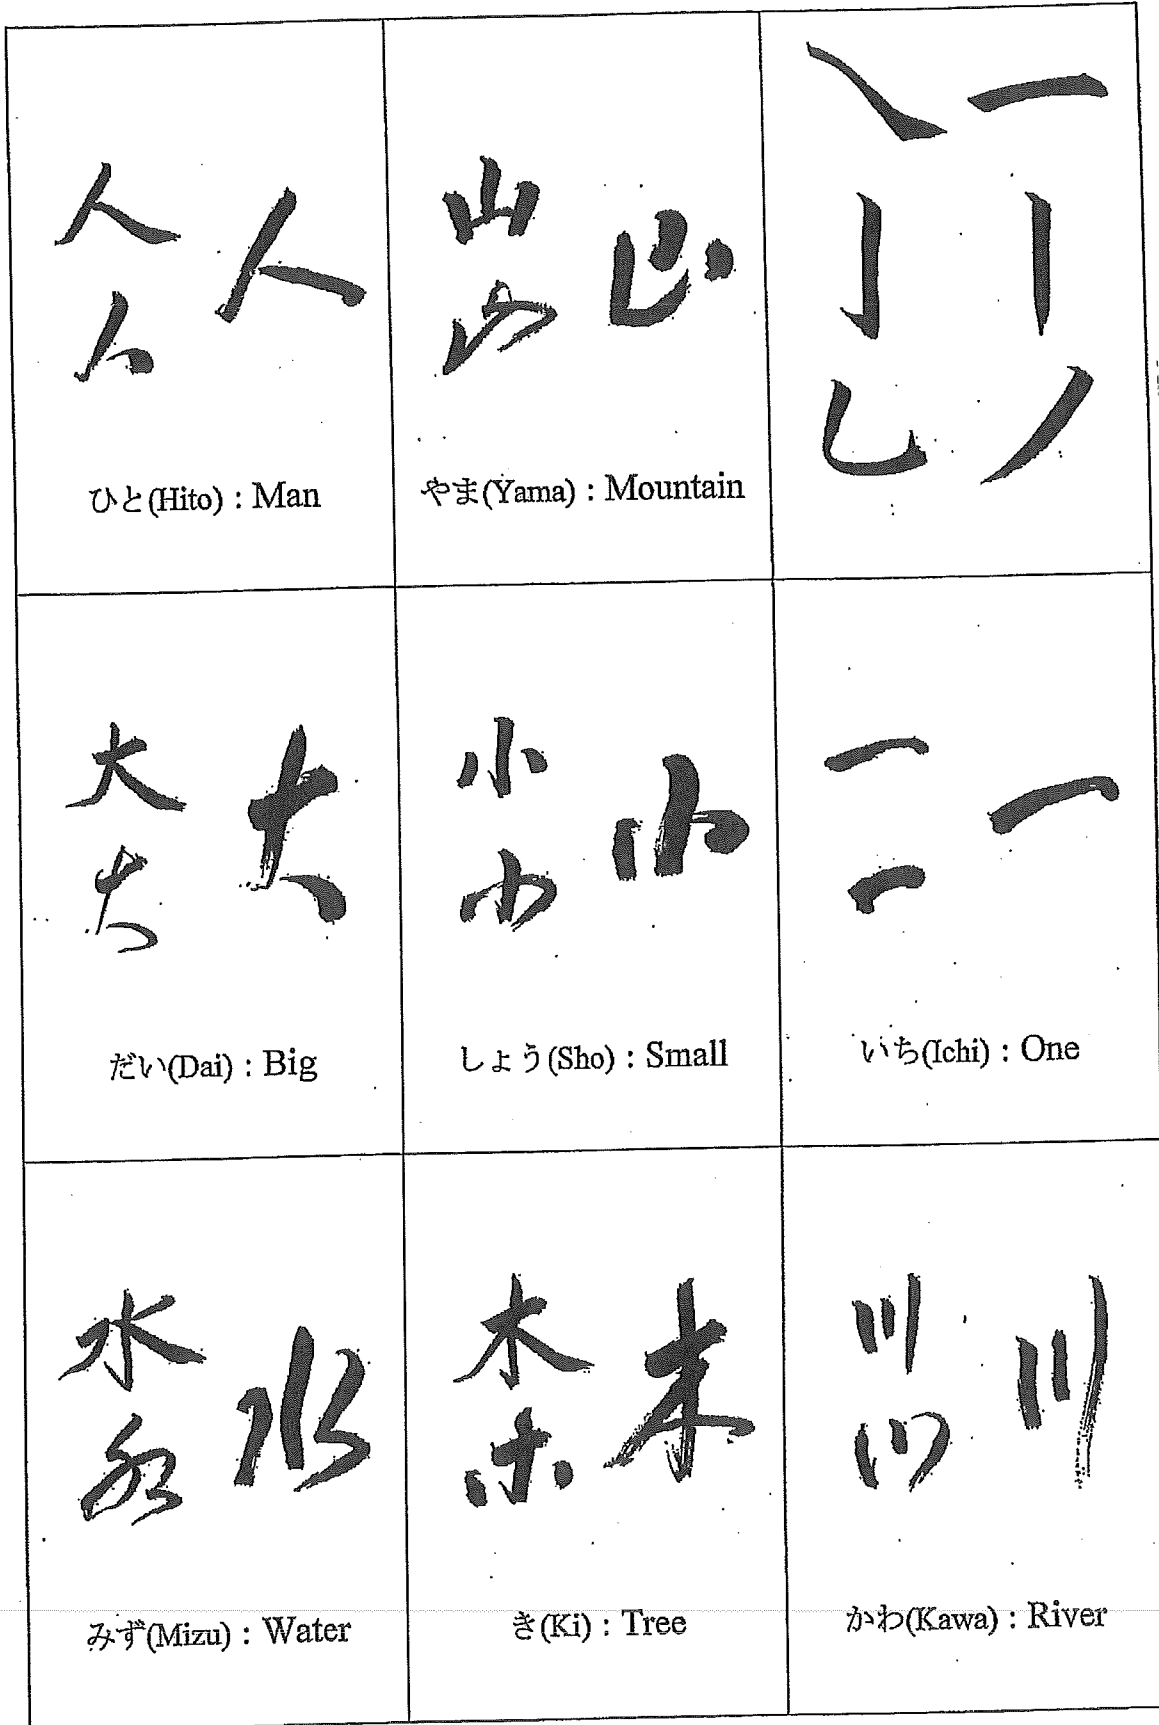 人 人
人
ひと(Hito) : Man
山 山
山
やま(Yama) : Mountain
大 大
大
だい(Dai) : Big
小 小
小
しょう(Sho) : Small
一 一
一
いち(Ichi) : One
水 水
水
みず(Mizu) : Water
木 木
木
き(Ki) : Tree
川 川
川
かわ(Kawa) : River